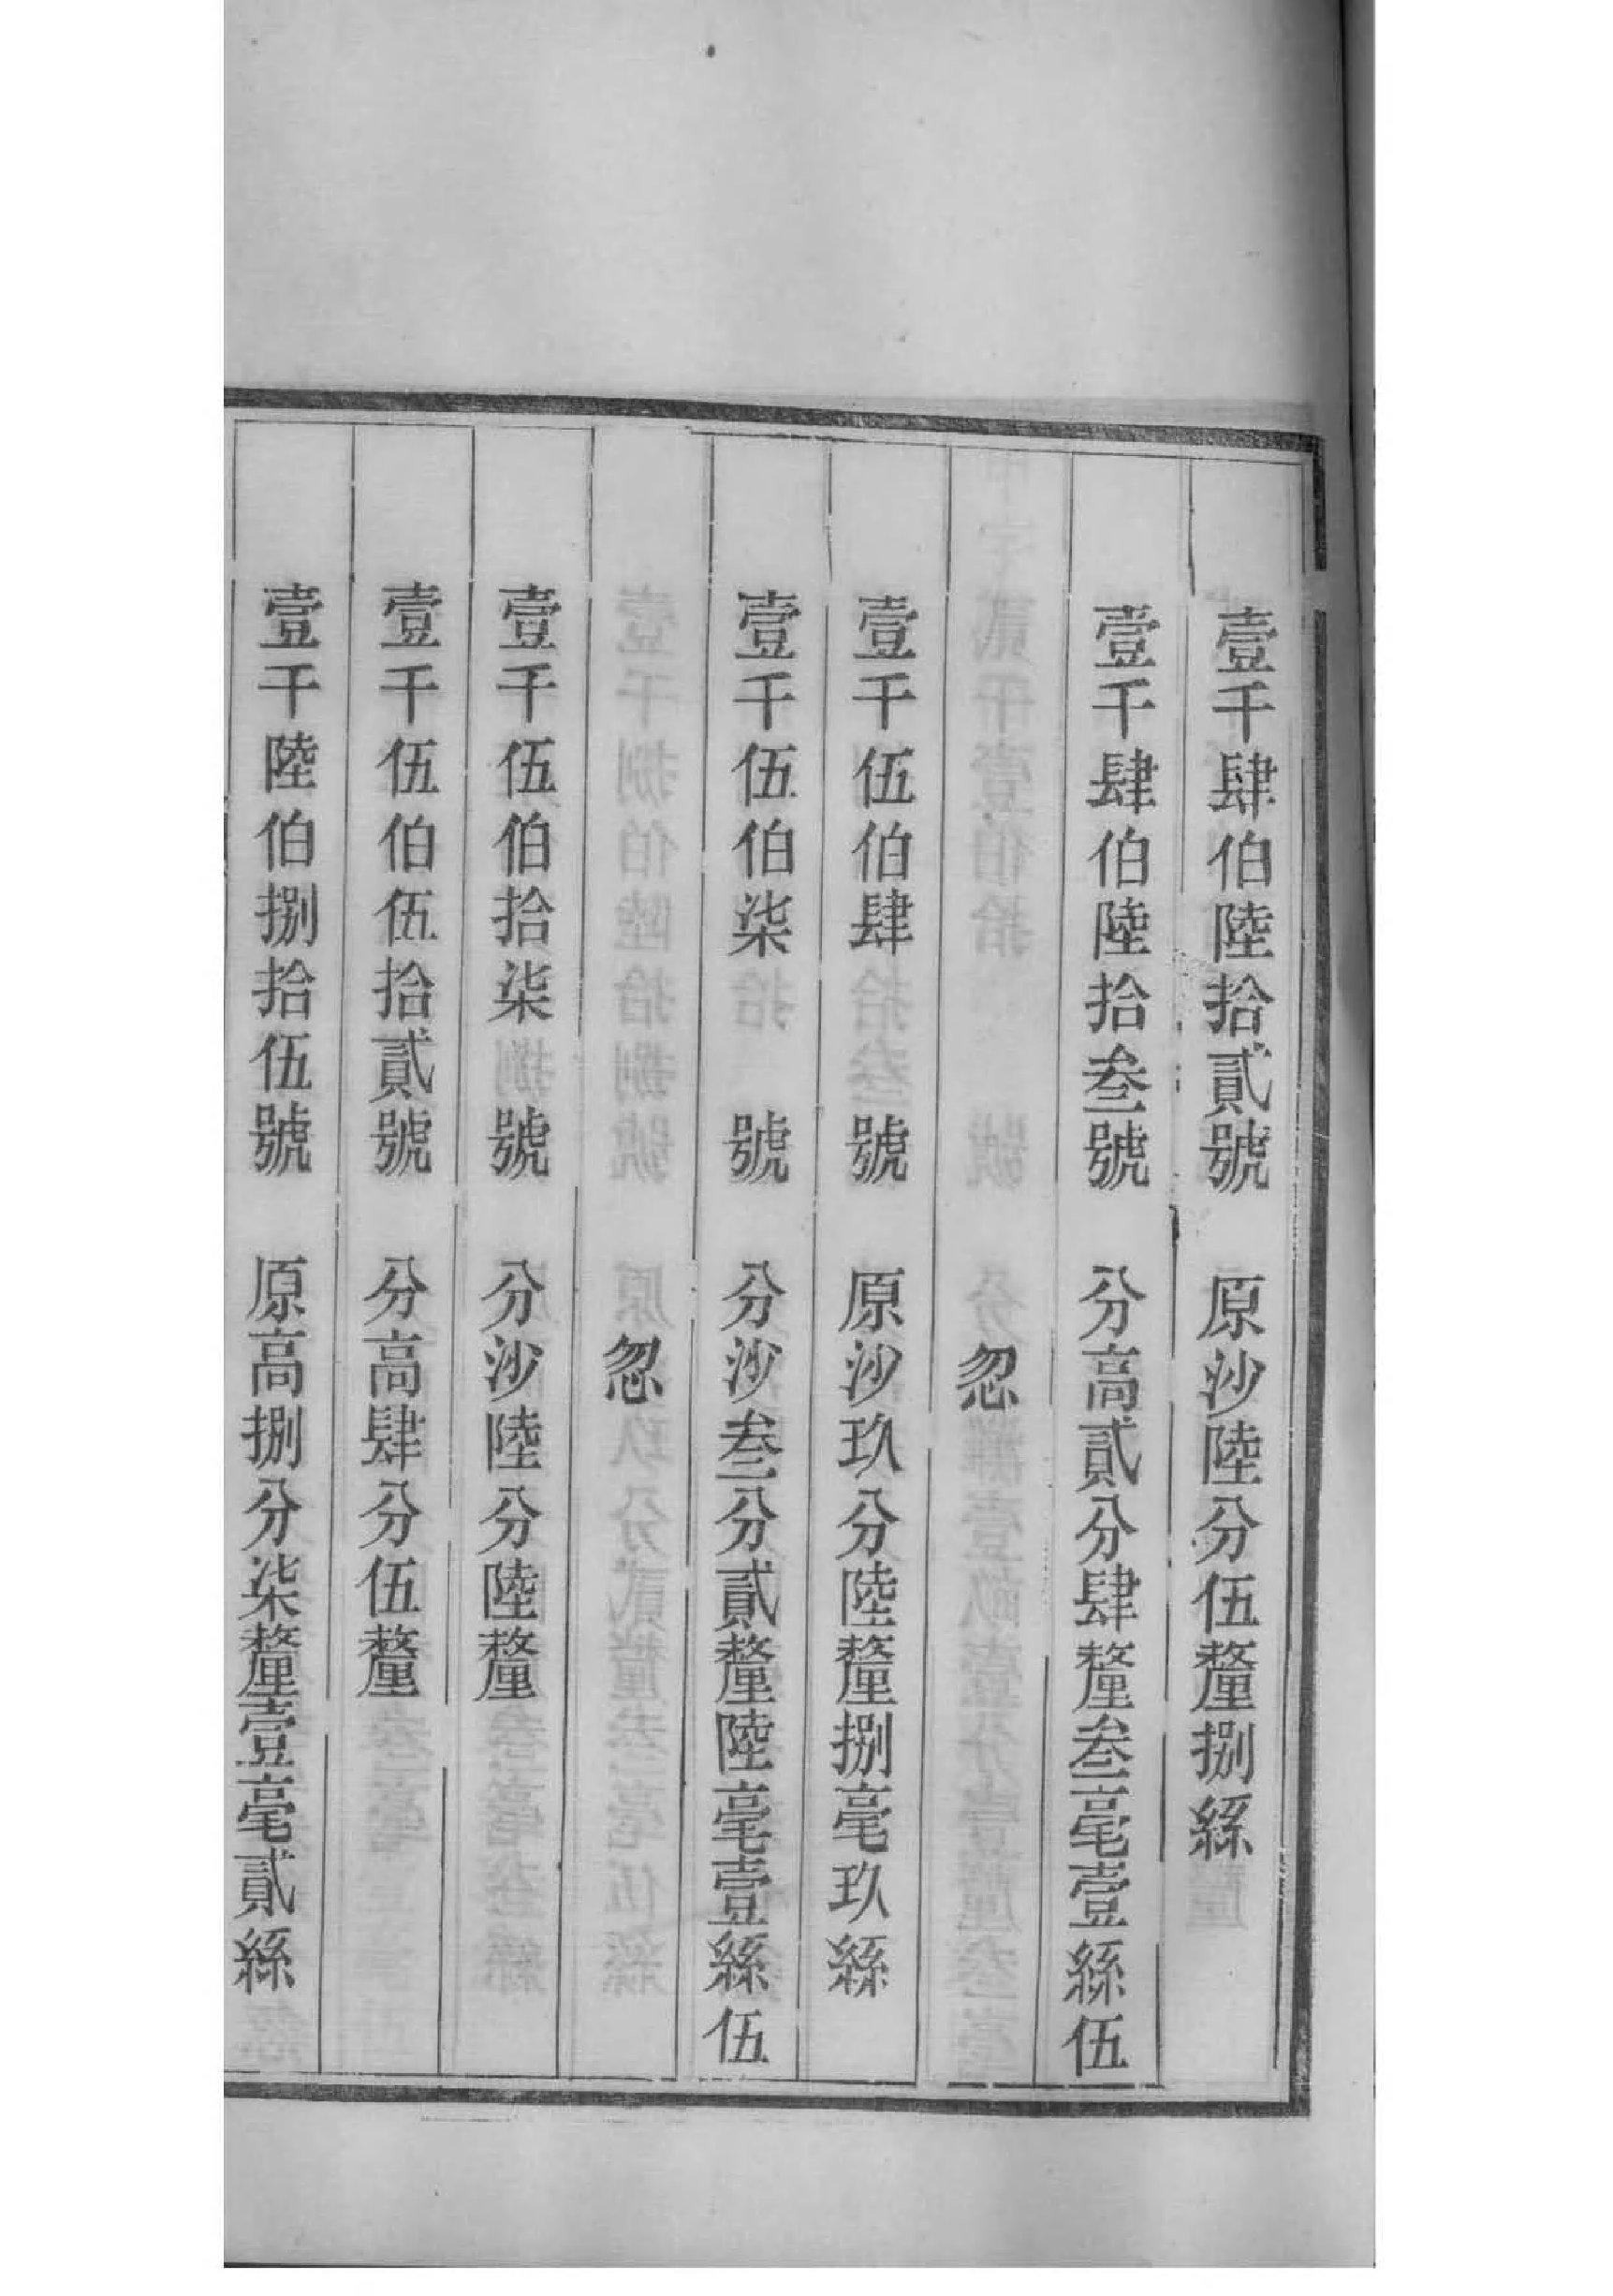 壹千肆伯陸拾貳號　原沙陸分伍釐捌絲
壹千肆伯陸拾叁號　分高貳分肆釐叁毫壹絲伍
忽
壹千伍伯肆　號　原沙玖分陸釐捌毫玖絲
壹千伍伯柒　號　分沙叁分貳釐陸毫壹絲伍
忽
壹千伍伯拾柒　號　分沙陸分陸釐
壹千伍伯伍拾貳號　分高肆分伍釐
壹千陸伯捌拾伍號　原高捌分柒釐壹毫貳絲